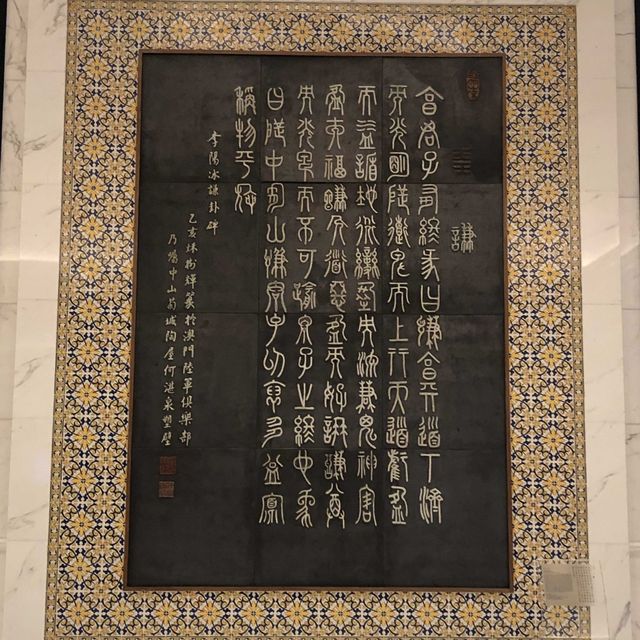 謙
亯君子有終彖曰嗛亯天道下濟
而光明地道卑而上行天道虧盈
而益謙地道變盈而流謙鬼神害
盈而福謙人道惡盈而好謙謙尊
而光卑而不可踰君子之終也象
曰地中有山嗛君子以裒多益寡
稱物平施
李陽冰謙卦碑
乙亥秋於澳門陸軍俱樂部
乃囑中山菊城陶屋何湛泉塑壁